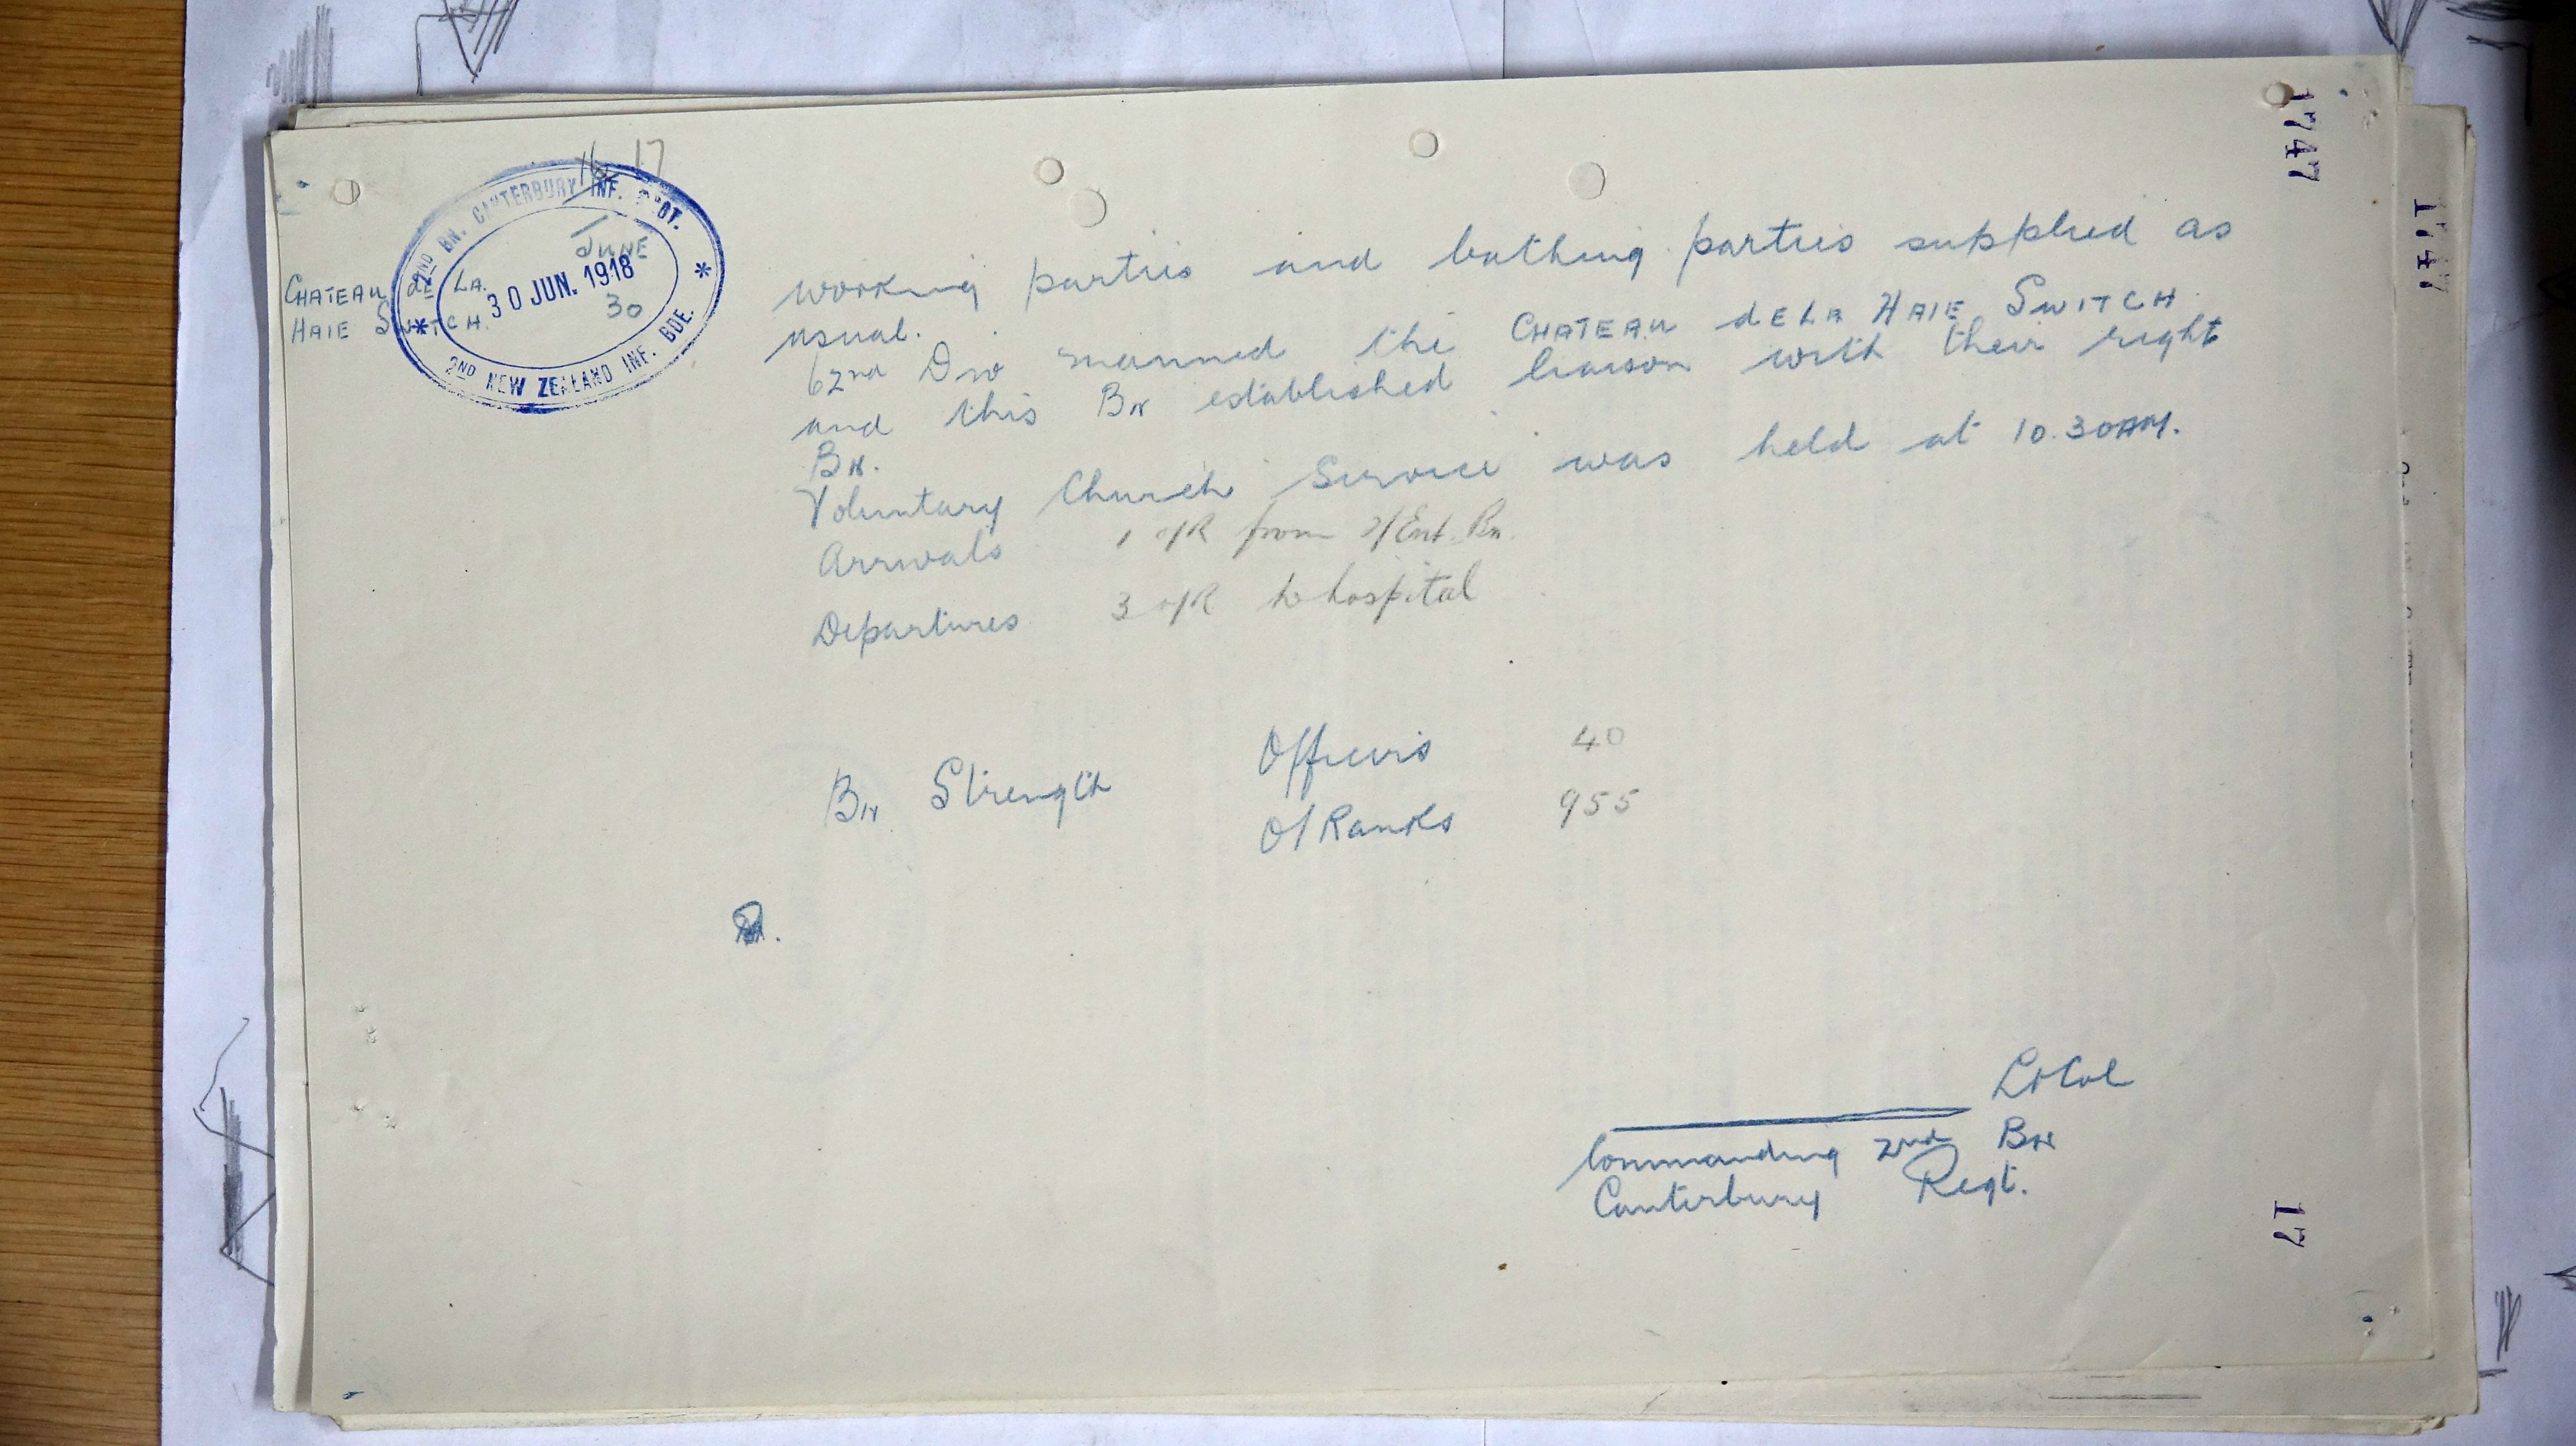 16 17
2ND BN. CANTERBURY INF.
JUNE
30 JUN. 1918
30
2ND NEW ZEALAND INF. BDE.
CHATEAU dE LA
HAIE SWITCH.
working parties and bathing parties supplied as
usual.
62nd Div manned the CHATEAU dE LA HAIE SWITCH
and this BN established liaison with their right
BN.
Voluntary Church Service was held at 10.30AM.
Arrivals 1 o/R from 2/Ent. Bn.
Departures 3 o/R to hospital
BN Strength Officers 40
O/Ranks 955
Lt Col
Commanding 2nd BN
Canterbury Regt.
1747
1747
17